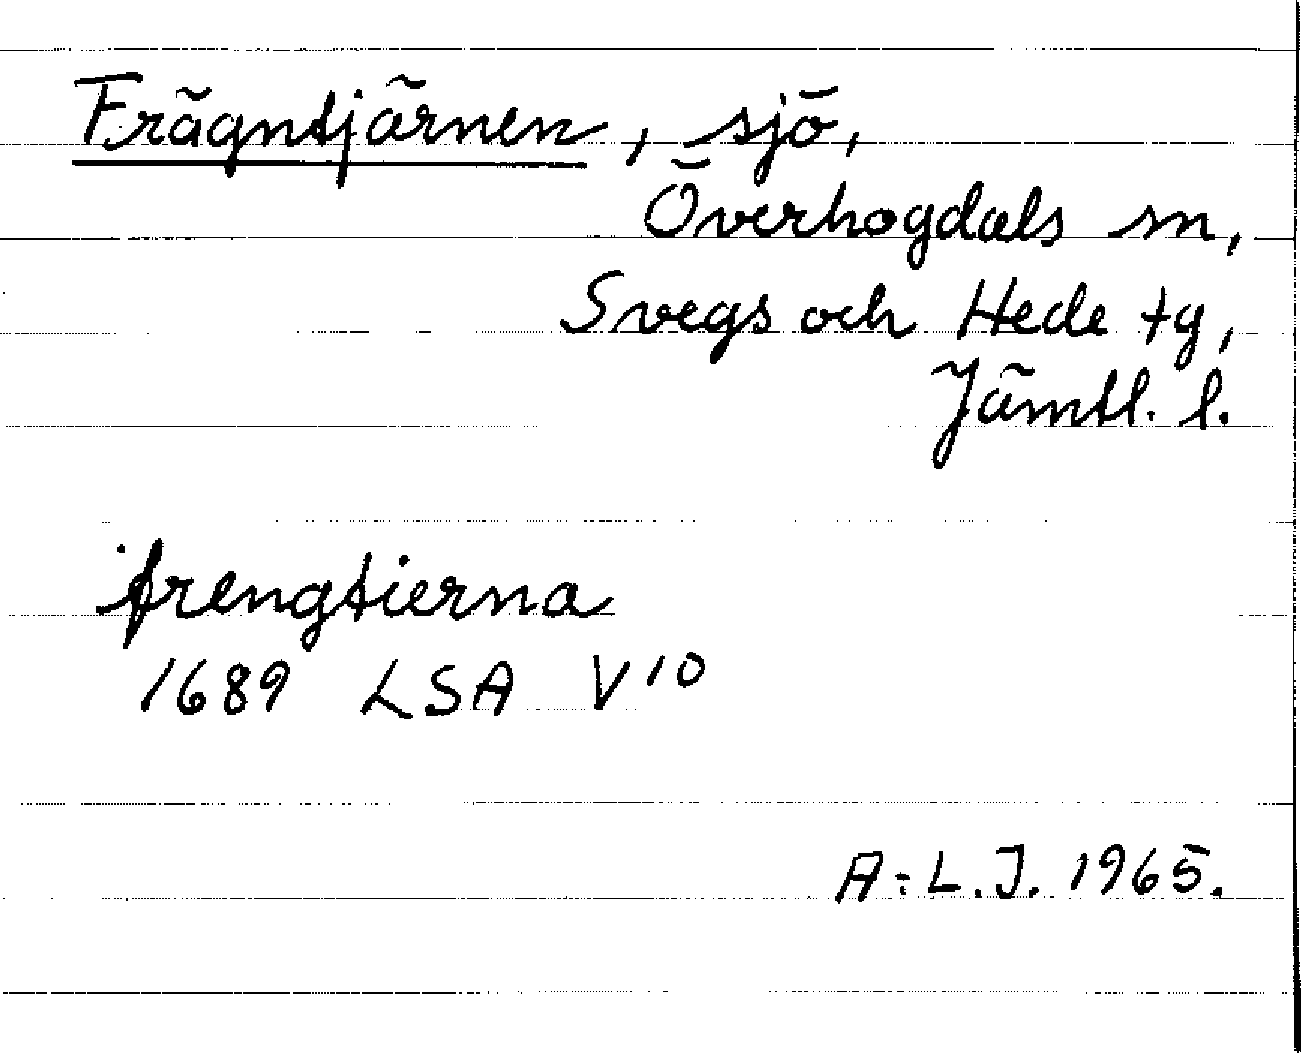 Frägntjärnen, sjö,
Överhogdals sn,
Svegs och Hede tg,
Jämtl. l.
frengtierna
1689 LSA V10
A-L.J. 1965.